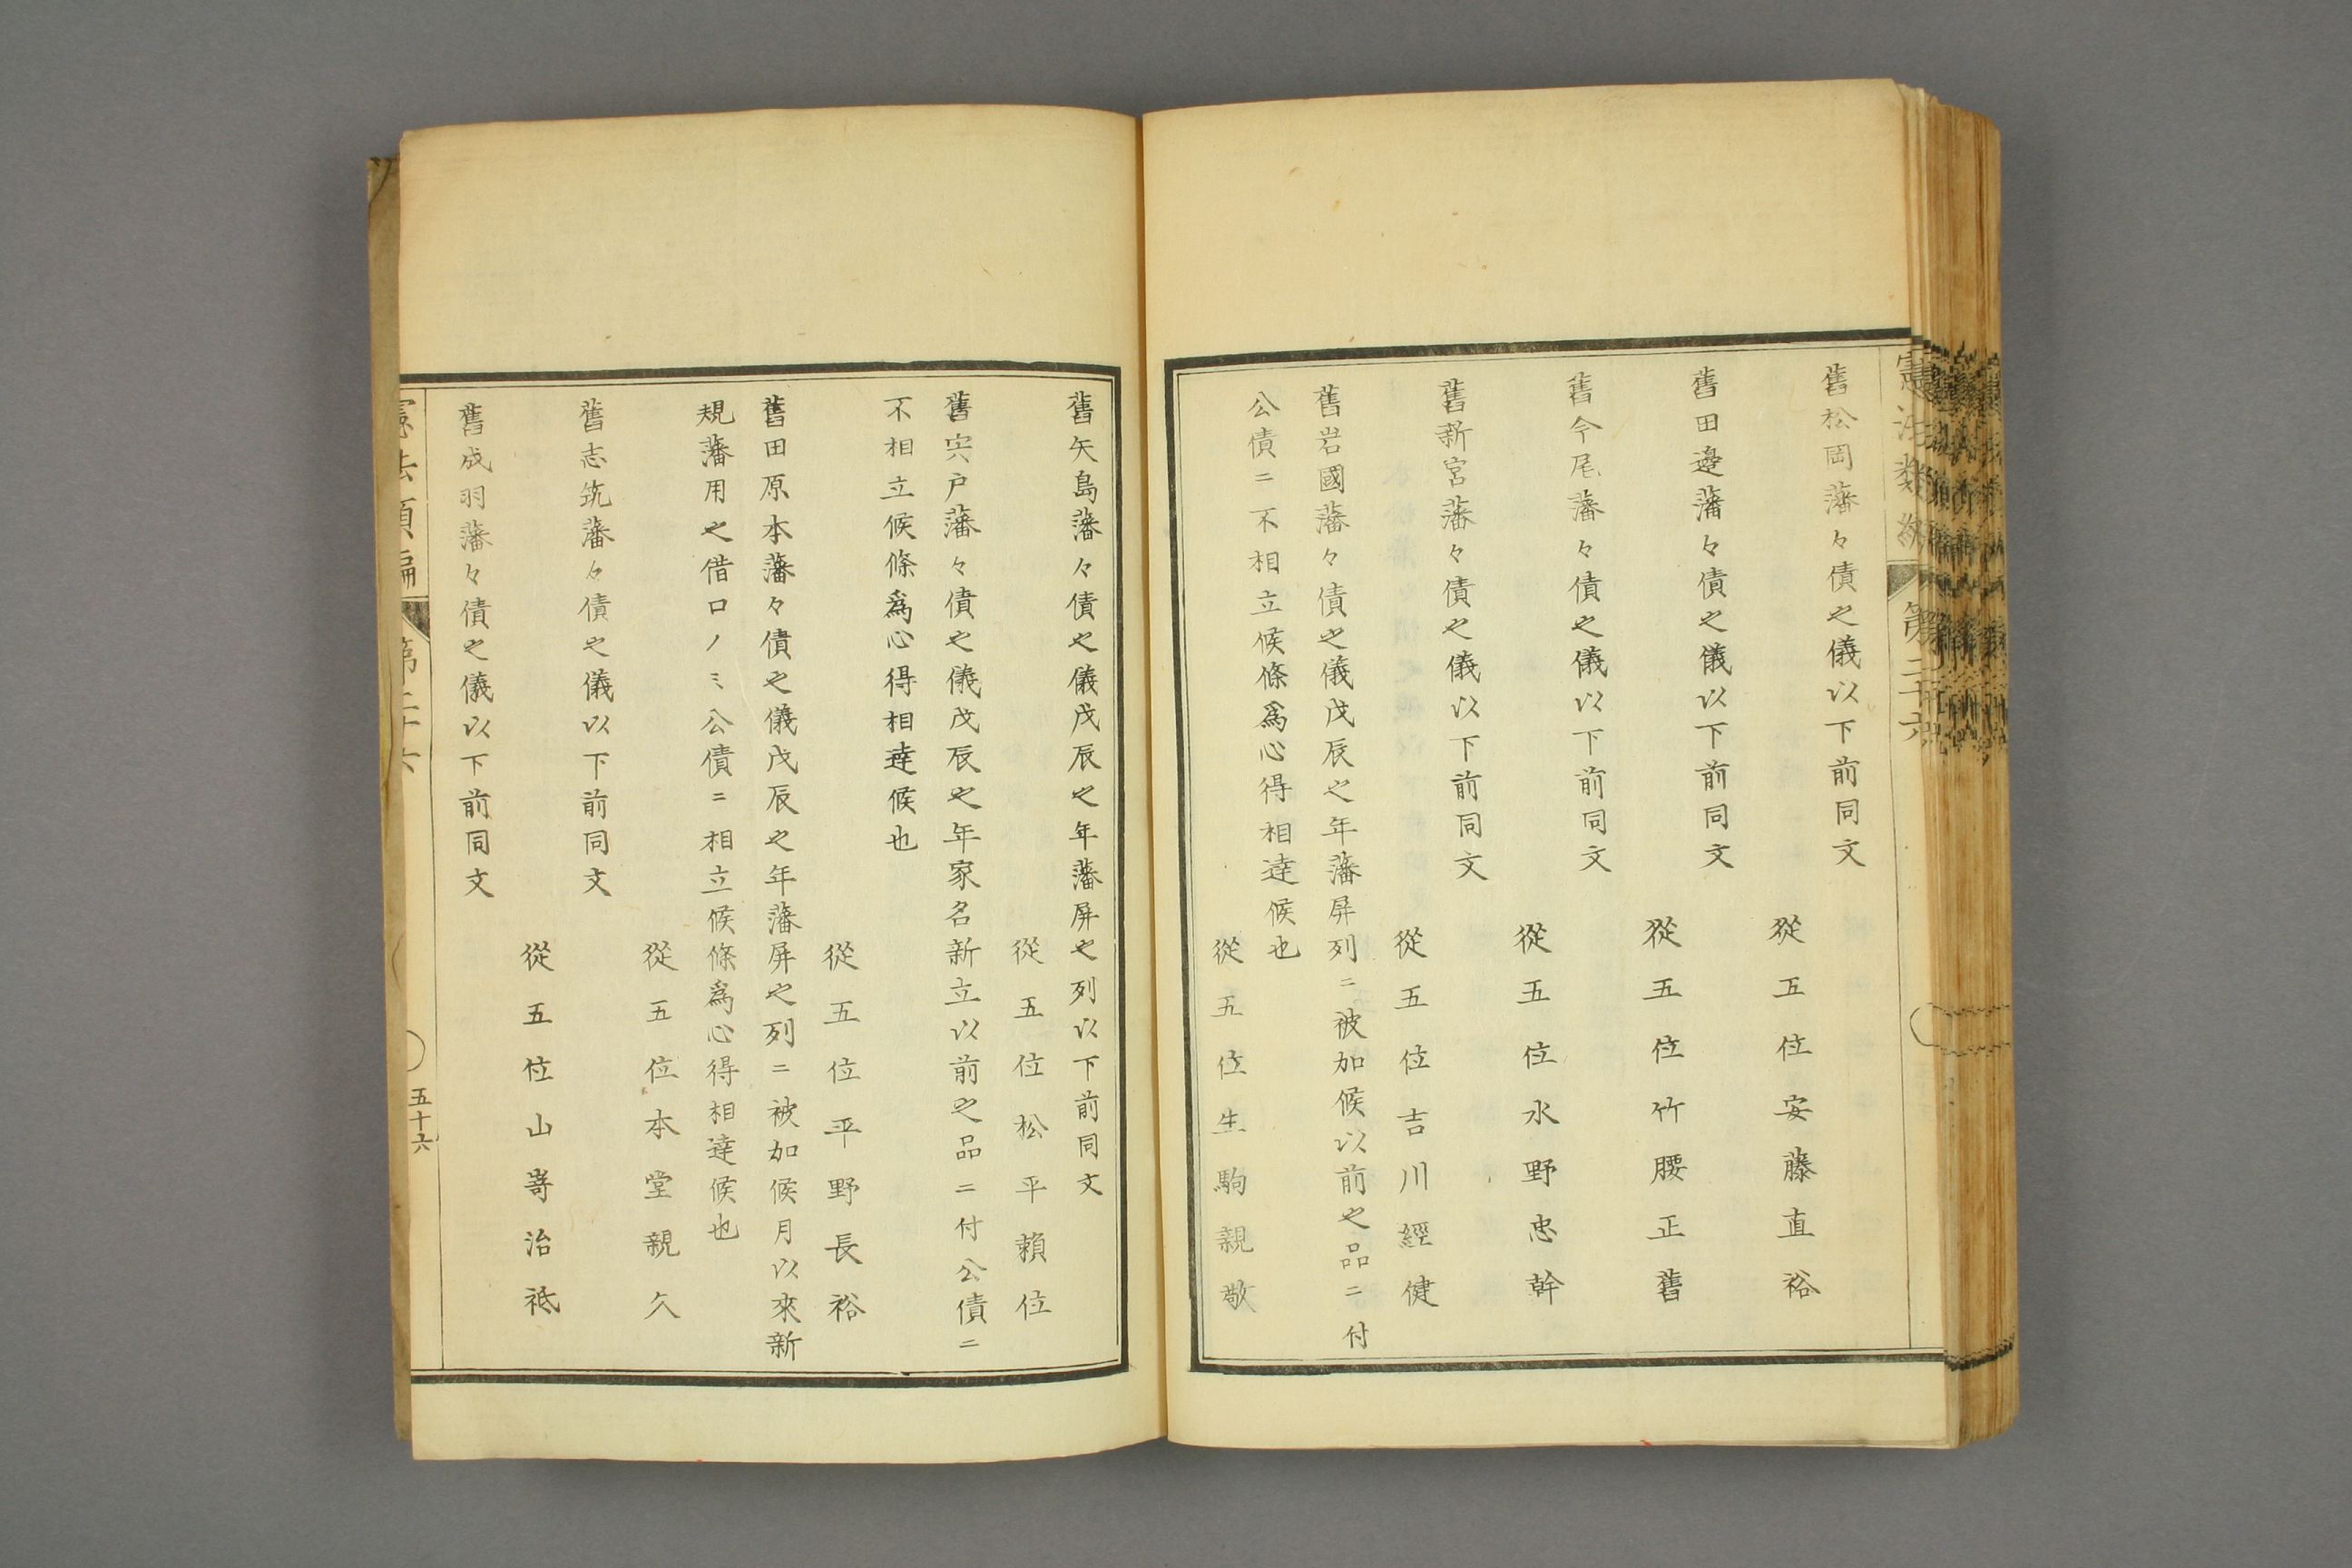 憲法類編
第二十六
舊松岡藩々債之儀以下前同文
從五位安藤直裕
舊田邊藩々債之儀以下前同文
從五位竹腰正舊
舊今尾藩々債之儀以下前同文
從五位水野忠幹
舊新宮藩々債之儀以下前同文
從五位吉川經健
舊岩國藩々債之儀戊辰之年藩屏列ニ被加候以前之品ニ付
公債ニ不相立候條爲心得相達候也
從五位生駒親敬
舊矢島藩々債之儀戊辰之年藩屏之列以下前同文
從五位松平賴位
舊宍戶藩々債之儀戊辰之年家名新立以前之品ニ付公債ニ
不相立候條爲心得相達候也
從五位平野長裕
舊田原本藩々債之儀戊辰之年藩屏之列ニ被加候月以來新
規藩用之借口ノミ公債ニ相立候條爲心得相達候也
從五位本堂親久
舊志筑藩々債之儀以下前同文
從五位山嵜治祗
舊成羽藩々債之儀以下前同文
憲法類編
第二十六
五十六